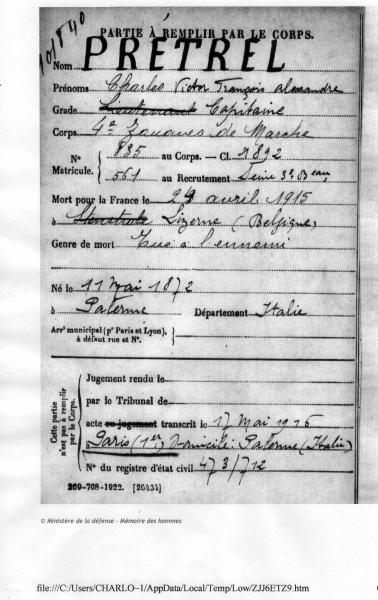 PARTIE À REMPLIR PAR LE CORPS.
Nom PRÉTREL
Prénoms Charles Victor François Alexandre
Grade Lieutenant Capitaine
Corps 4e Zouaves de Marche
N° 835 au Corps. — Cl. 1892
Matricule. 561 au Recrutement Seine 3e Beau
Mort pour la France le 24 avril 1915
à Lizerne (Belgique)
Genre de mort Tué à l'ennemi
Né le 11 Mai 1872
à Palerme Département Italie
Arrt municipal (pr Paris et Lyon),
à défaut rue et N°.
Cette partie n'est pas à remplir par le Corps.
Jugement rendu le
par le Tribunal de
acte ou jugement transcrit le 17 Mai 1916
à Paris (1er) Domicile: Palerme (Italie)
N° du registre d'état civil 473/712
269-708-1922. [26434]
© Ministère de la défense - Mémoire des hommes
file:///C:/Users/CHARLO~1/AppData/Local/Temp/Low/ZJJ6ETZ9.htm